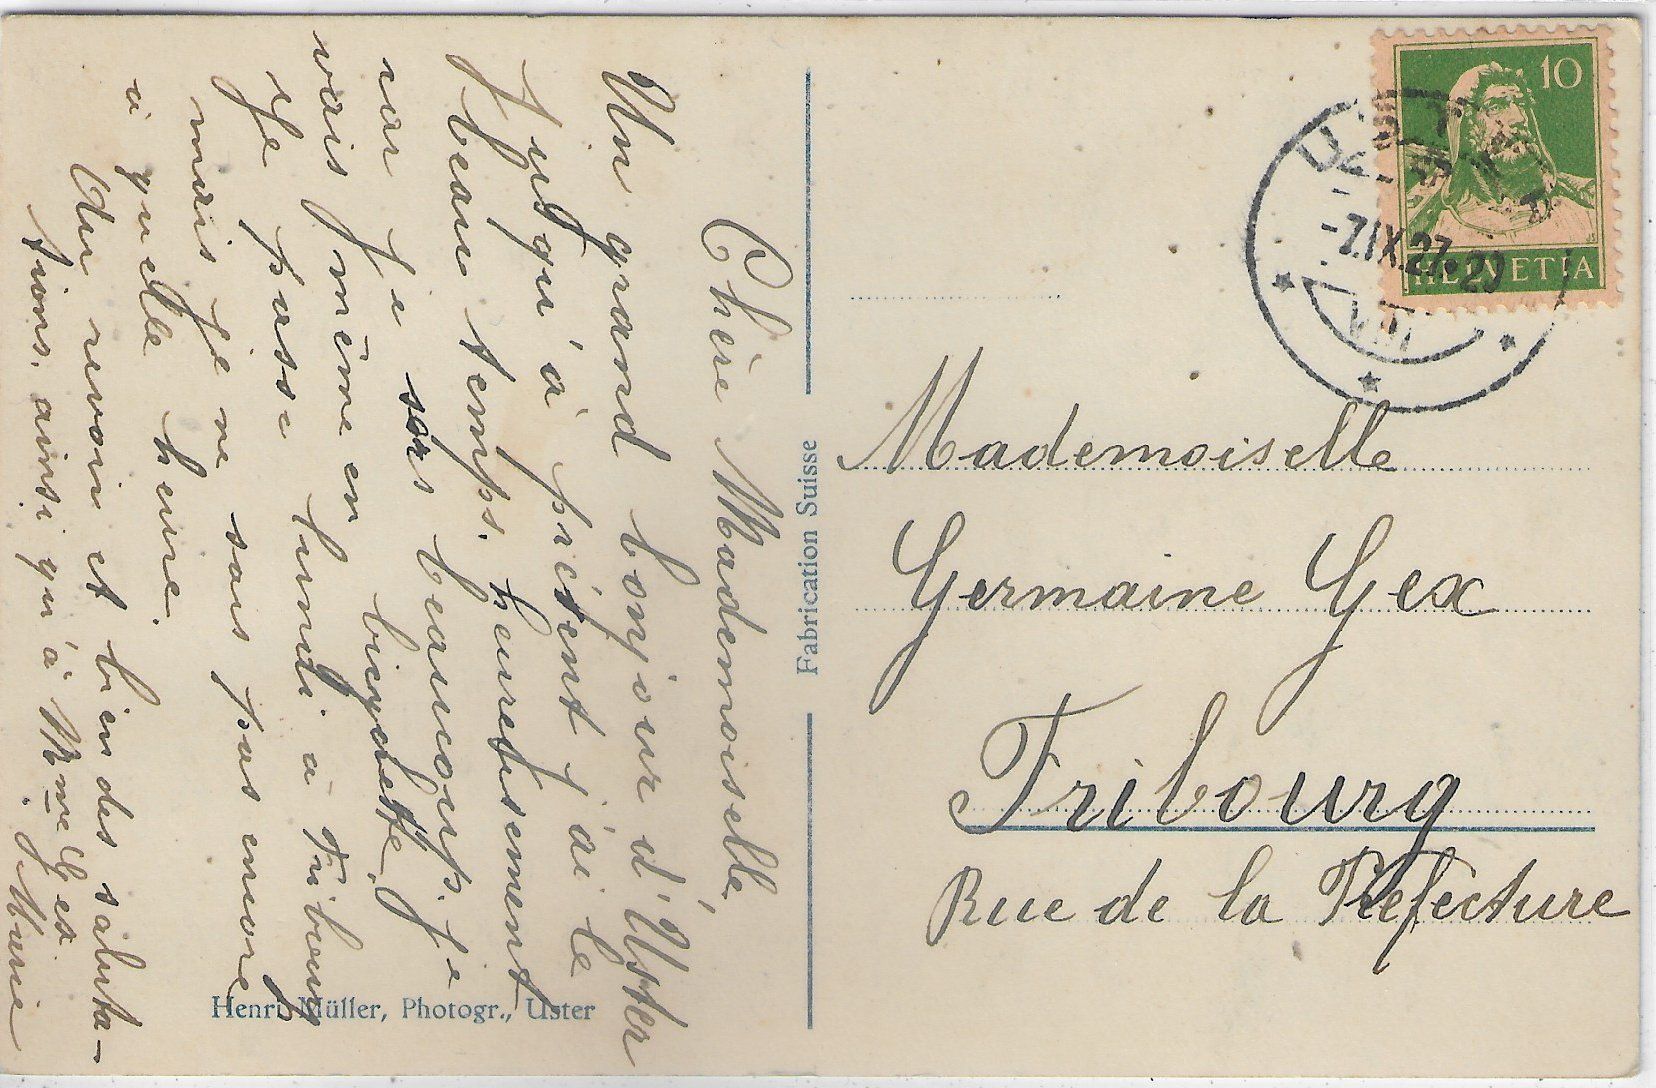 Chère Mademoiselle,
Un grand bonjour d'Uster
jusqu'à présent j'ai le
beau temps. heureusement
car je sors beaucoup. je
vais même en bicyclette. Je
Je passe lundi à Fribourg
mais je ne sais pas encore
à quelle heure.
Au revoir et bien des saluta-
tions, ainsi qu'à Mme Gex.
Henri Müller, Photogr., Uster
Fabrication Suisse
10
HELVETIA
USTER
-7.IX.27.-20
VIII
Mademoiselle
Germaine Gex
Fribourg
Rue de la Préfecture